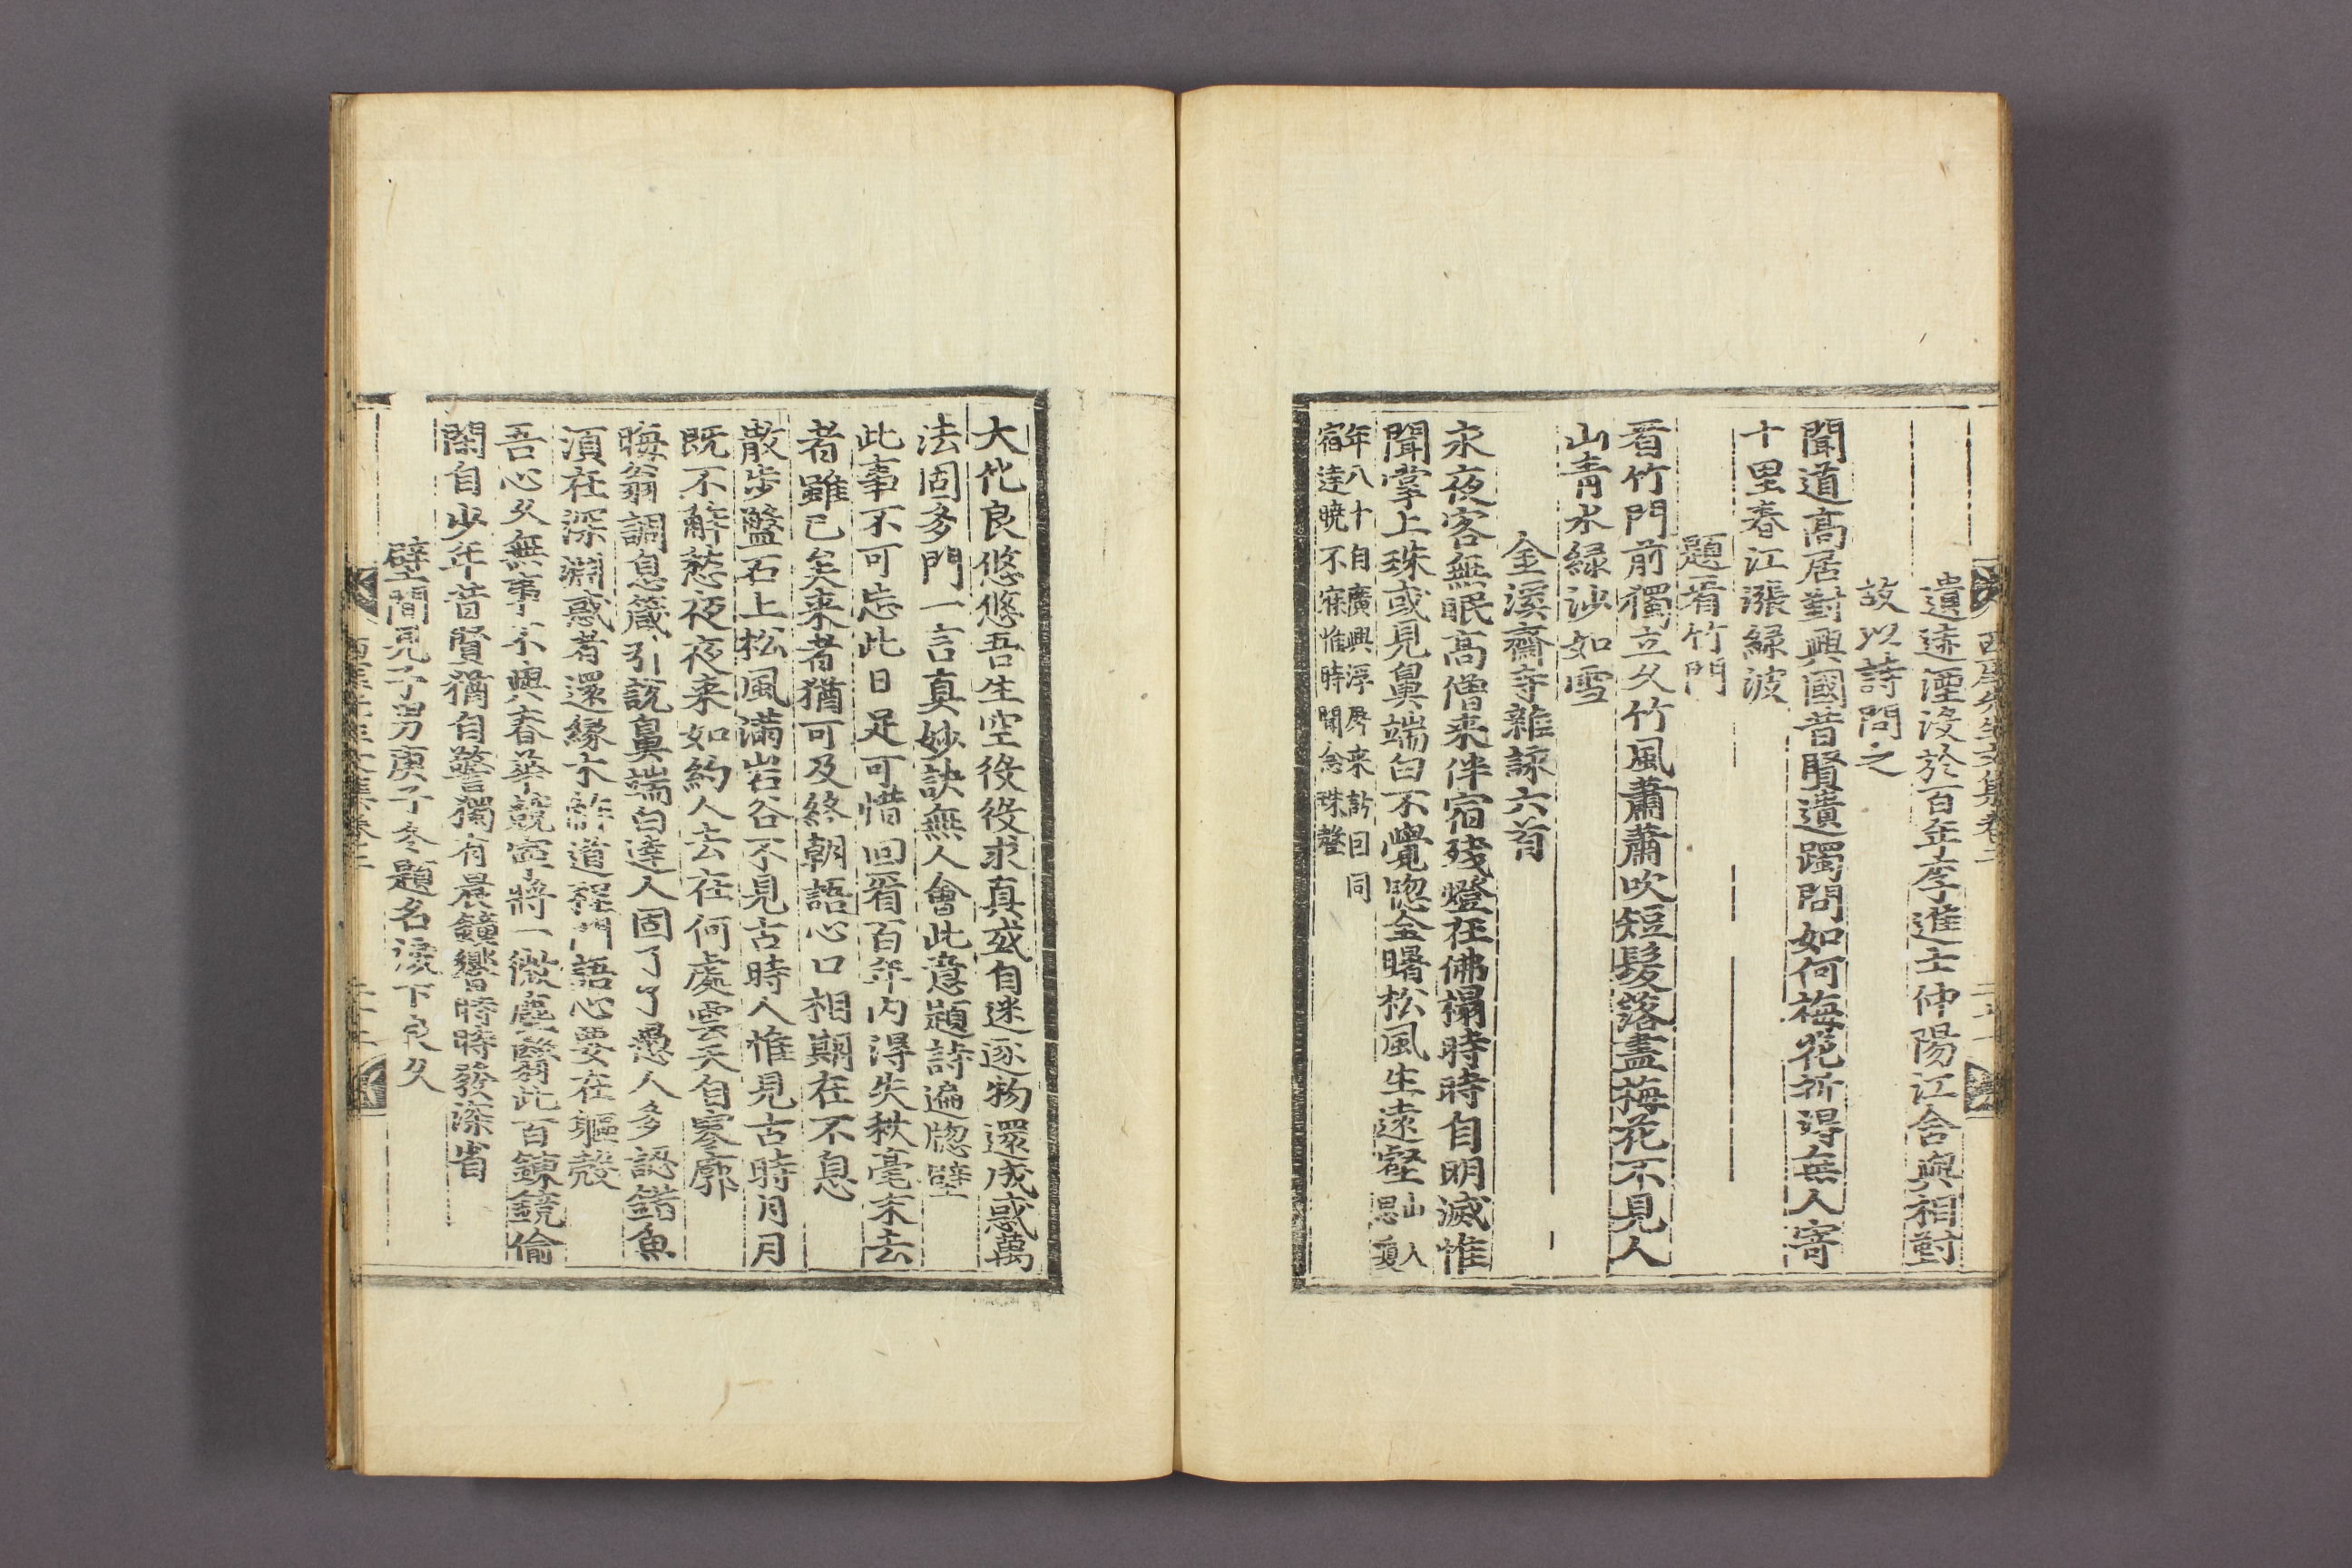 遺迹湮沒於百年李進士仲陽江舍與相對
故以詩問之
聞道高居對興國昔賢遺躅問如何梅花折得無人寄
十里春江漲綠波
題看竹門
看竹門前獨立久竹風蕭蕭吹短髮落盡梅花不見人
山靑水綠沙如雪
金溪齋寺雜詠六首
永夜客無眠高僧來伴宿殘燈在佛榻時時自明滅惟
聞掌上珠或見鼻端白不覺窓全曙松風生遠壑山人思頙
年八十自廣興浮屠來訪曰同
宿達曉不寐惟時聞念珠聲
大化良悠悠吾生空役役求真或自迷逐物還成惑萬
法固多門一言真妙訣無人會此意題詩遍牕壁
此事不可忘此日足可惜回看百年內得失秋毫末去
者雖已矣來者猶可及終朝語心口相期在不息
散步盤石上松風滿岩谷不見古時人惟見古時月月
既不解愁夜夜來如約人去在何處雲天自寥廓
晦翁調息箴引說鼻端白達人固了了愚人多認錯魚
湏在深淵惑者還緣木許道程門語心要在軀殼
吾心久無事不與春華競寧將一微塵翳此百鍊鏡偷
閑自少年昔賢猶自警獨有晨鐘響時時發深省
壁間見子男庚子冬題名淚下良久